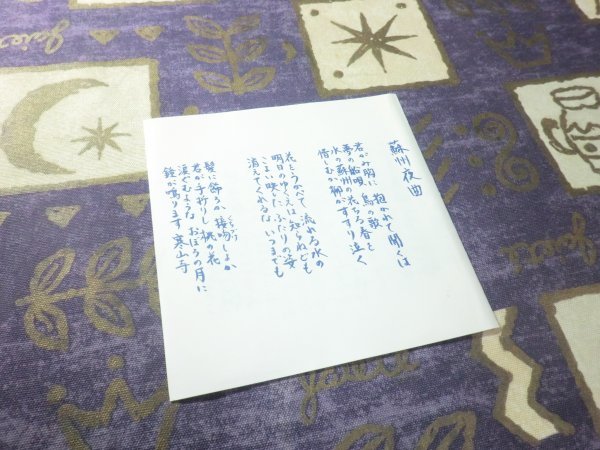 蘇州夜曲
君がみ胸に 抱かれて聞くは
夢の船唄 鳥の歌
水の蘇州の 花ちる春を
惜しむか 柳がすすり泣く
花をうかべて 流れる水の
明日のゆくえは 知らねども
こよい映した ふたりの姿
消えてくれるな いつまでも
髪に飾ろか 接吻しよか
君が手折りし 桃の花
涙ぐむよな おぼろの月に
鐘が鳴ります 寒山寺